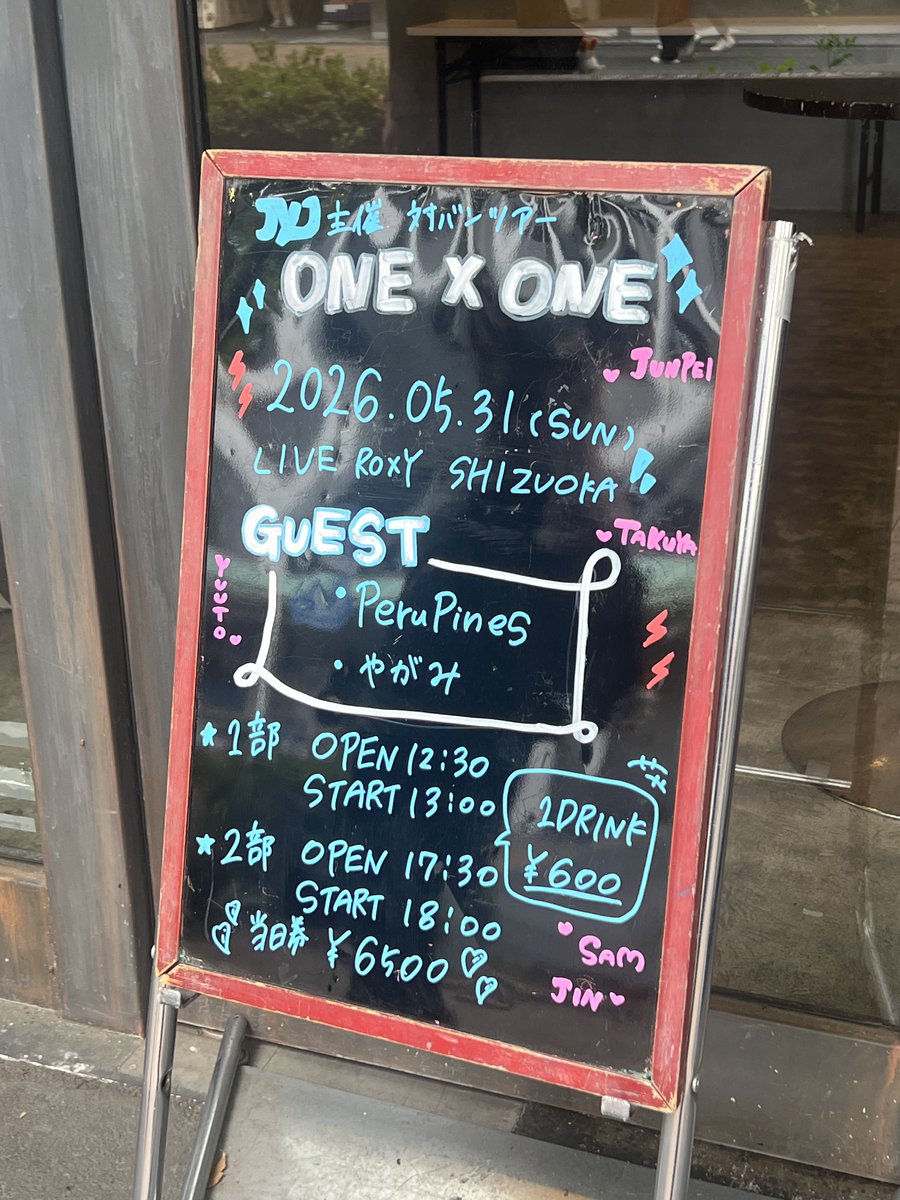 JYJ 主催 対バンツアー
ONE X ONE
JUNPEI
2026.05.31 (SUN)
LIVE ROXY SHIZUOKA!!
GUEST
TAKUYA
YUUTO
・PeruPines
・やがみ
★1部 OPEN 12:30
START 13:00
1DRINK
¥600
★2部 OPEN 17:30
START 18:00
当日券 ¥6500
SAM
JIN